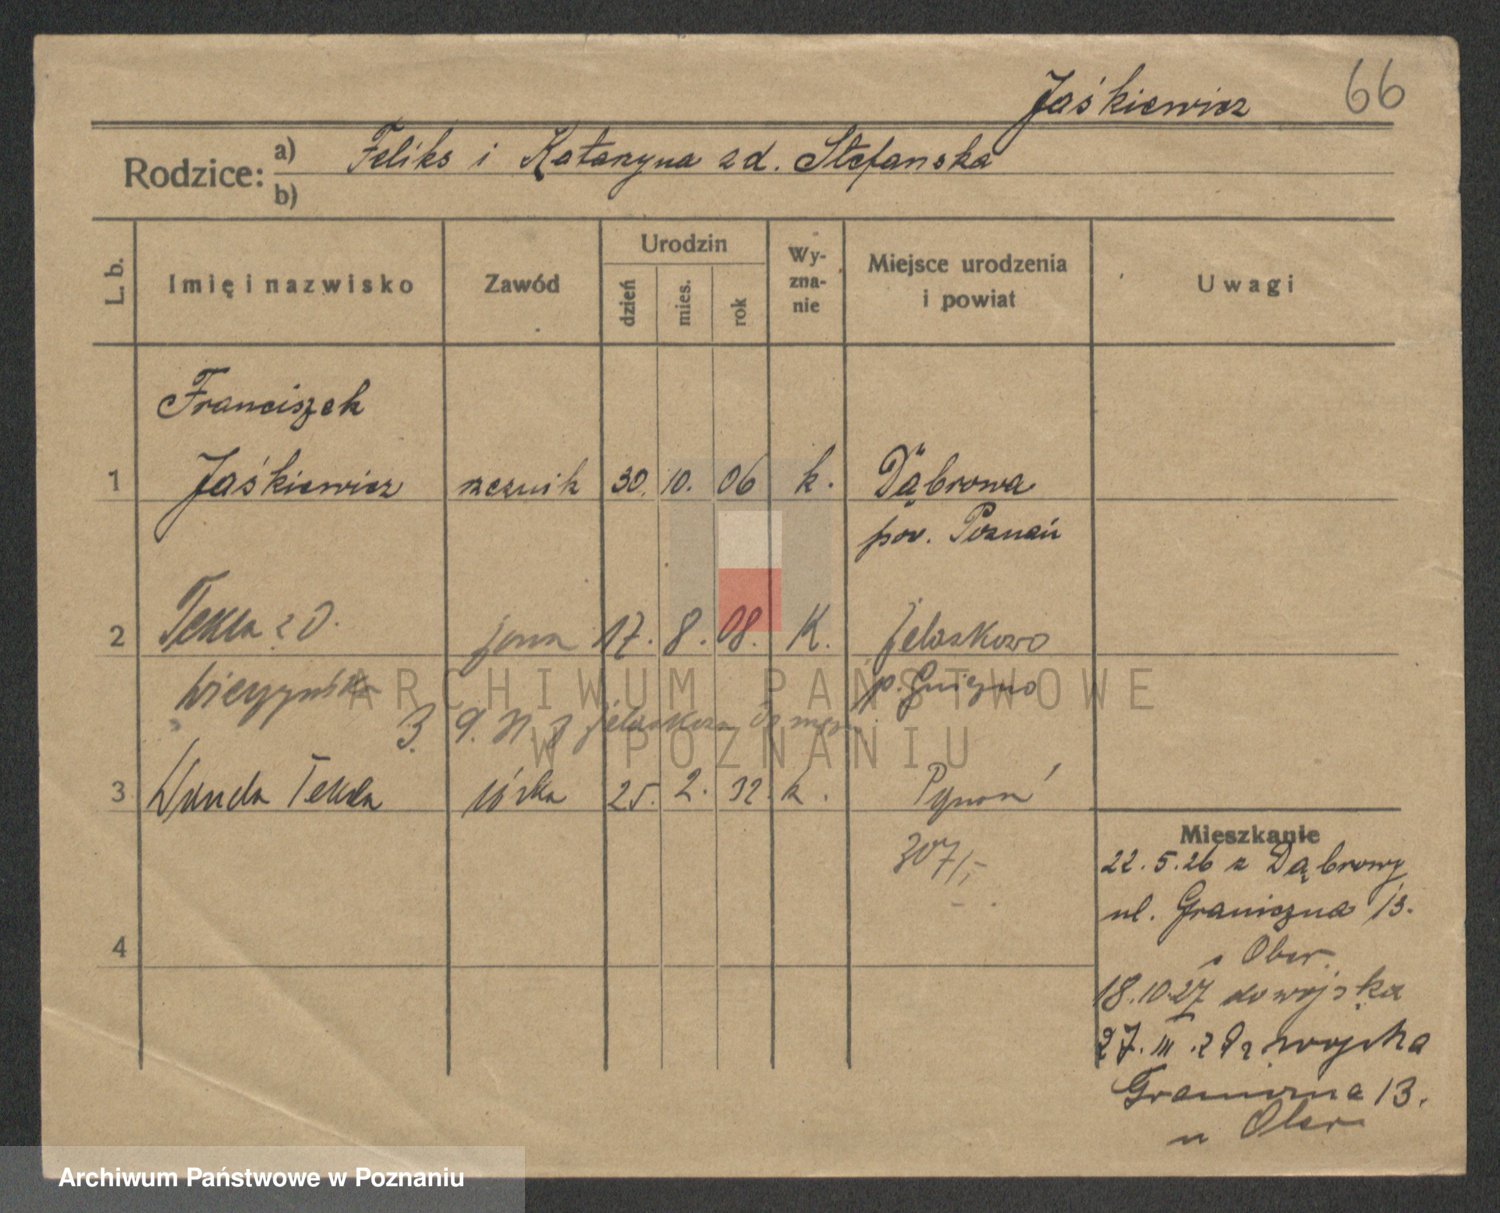 Jaśkiewicz 66
Rodzice: a) Feliks i Katarzyna zd. Stefańska
b)
L. b. Imię i nazwisko Zawód Urodzin dzień mies. rok Wyznanie Miejsce urodzenia i powiat Uwagi
Franciszek
1 Jaśkiewicz rzeźnik 30. 10. 06 k. Dąbrowa
pow. Poznań
2 Tekla zd. żona 17. 8. 08. K.
p. Gniezno
3.
3 Wanda Tekla córka 25. 2. 32. k. Poznań
307/,-
Mieszkanie
22.5.26 z Dąbrowy
ul. Graniczna 13.
4
18.10.27 do wojska
27.III.29 z wojska
Graniczna 13.
u
ARCHIWUM PAŃSTWOWE
W POZNANIU
Archiwum Państwowe w Poznaniu